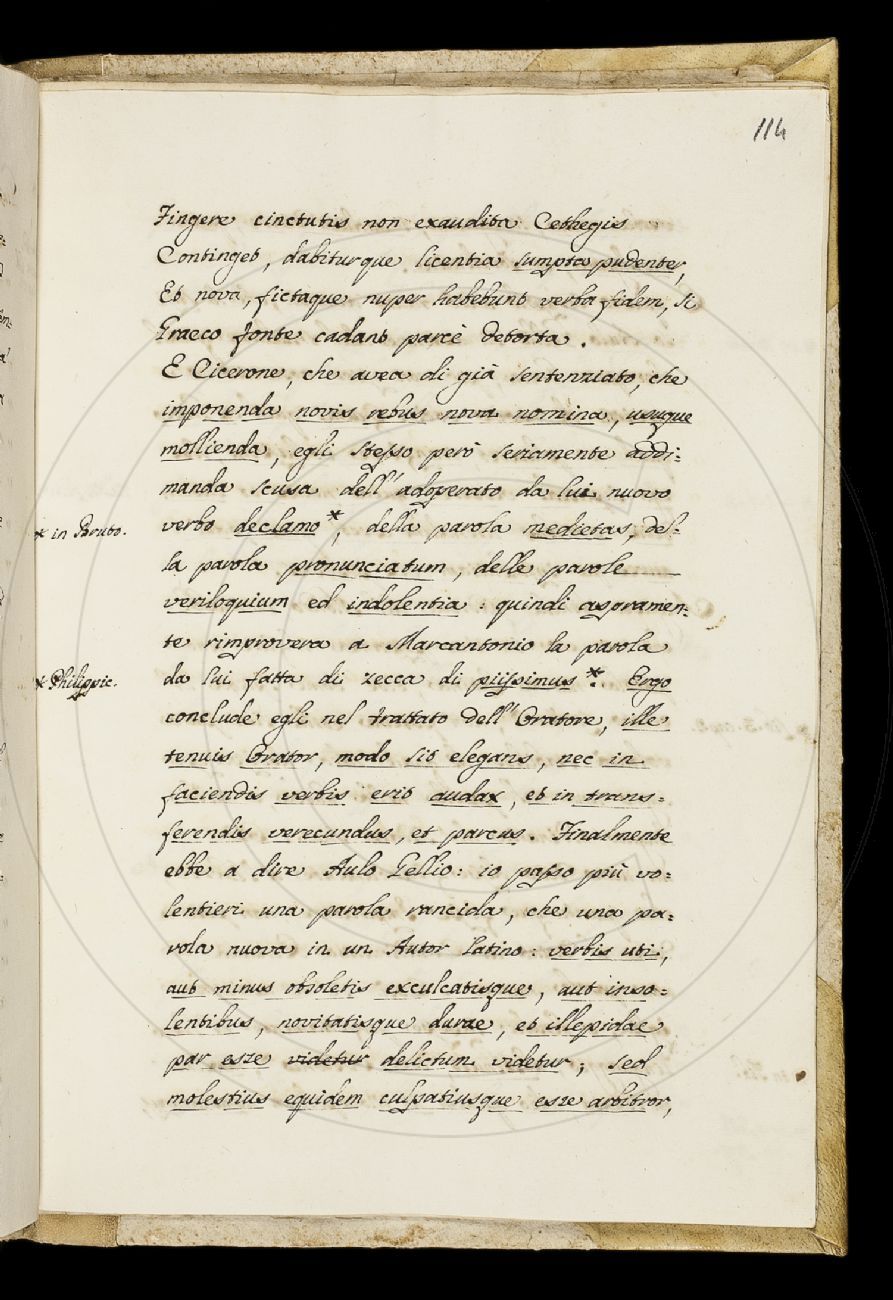 114
Fingere cinctutis non exaudita Cethegis
Continget, dabiturque licentia sumpta pudenter,
Et nova, fictaque nuper habebunt verba fidem, si
Graeco fonte cadant parcè detorta.
E Cicerone, che avea di già sentenziato, che
imponenda novis rebus nova nomina, usuque
mollienda, egli stesso però seriamente addi=
manda scusa dell' adoperato da lui nuovo
* in Bruto.
verbo declamo*, della parola medietas, del=
la parola pronunciatum, delle parole
veriloquium ed indolentia: quindi aspramen=
te rimprovera a Marcantonio la parola
* Philippic.
da lui fatta di zecca di piissimus*. Ergo
conclude egli nel trattato dell' Oratore, ille
tenuis Orator, modo sit elegans, nec in
faciendis verbis erit audax, et in trans=
ferendis verecundus, et parcus. Finalmente
ebbe a dire Aulo Gellio: io passo più vo=
lentieri una parola rancida, che una pa=
rola nuova in un Autor latino: verbis uti,
aut minus obsoletis exculcatisque, aut inso=
lentibus, novitatisque durae, et illepidae
par esze videtur delictum videtur; sed
molestius equidem culpatiusque esze arbitror,